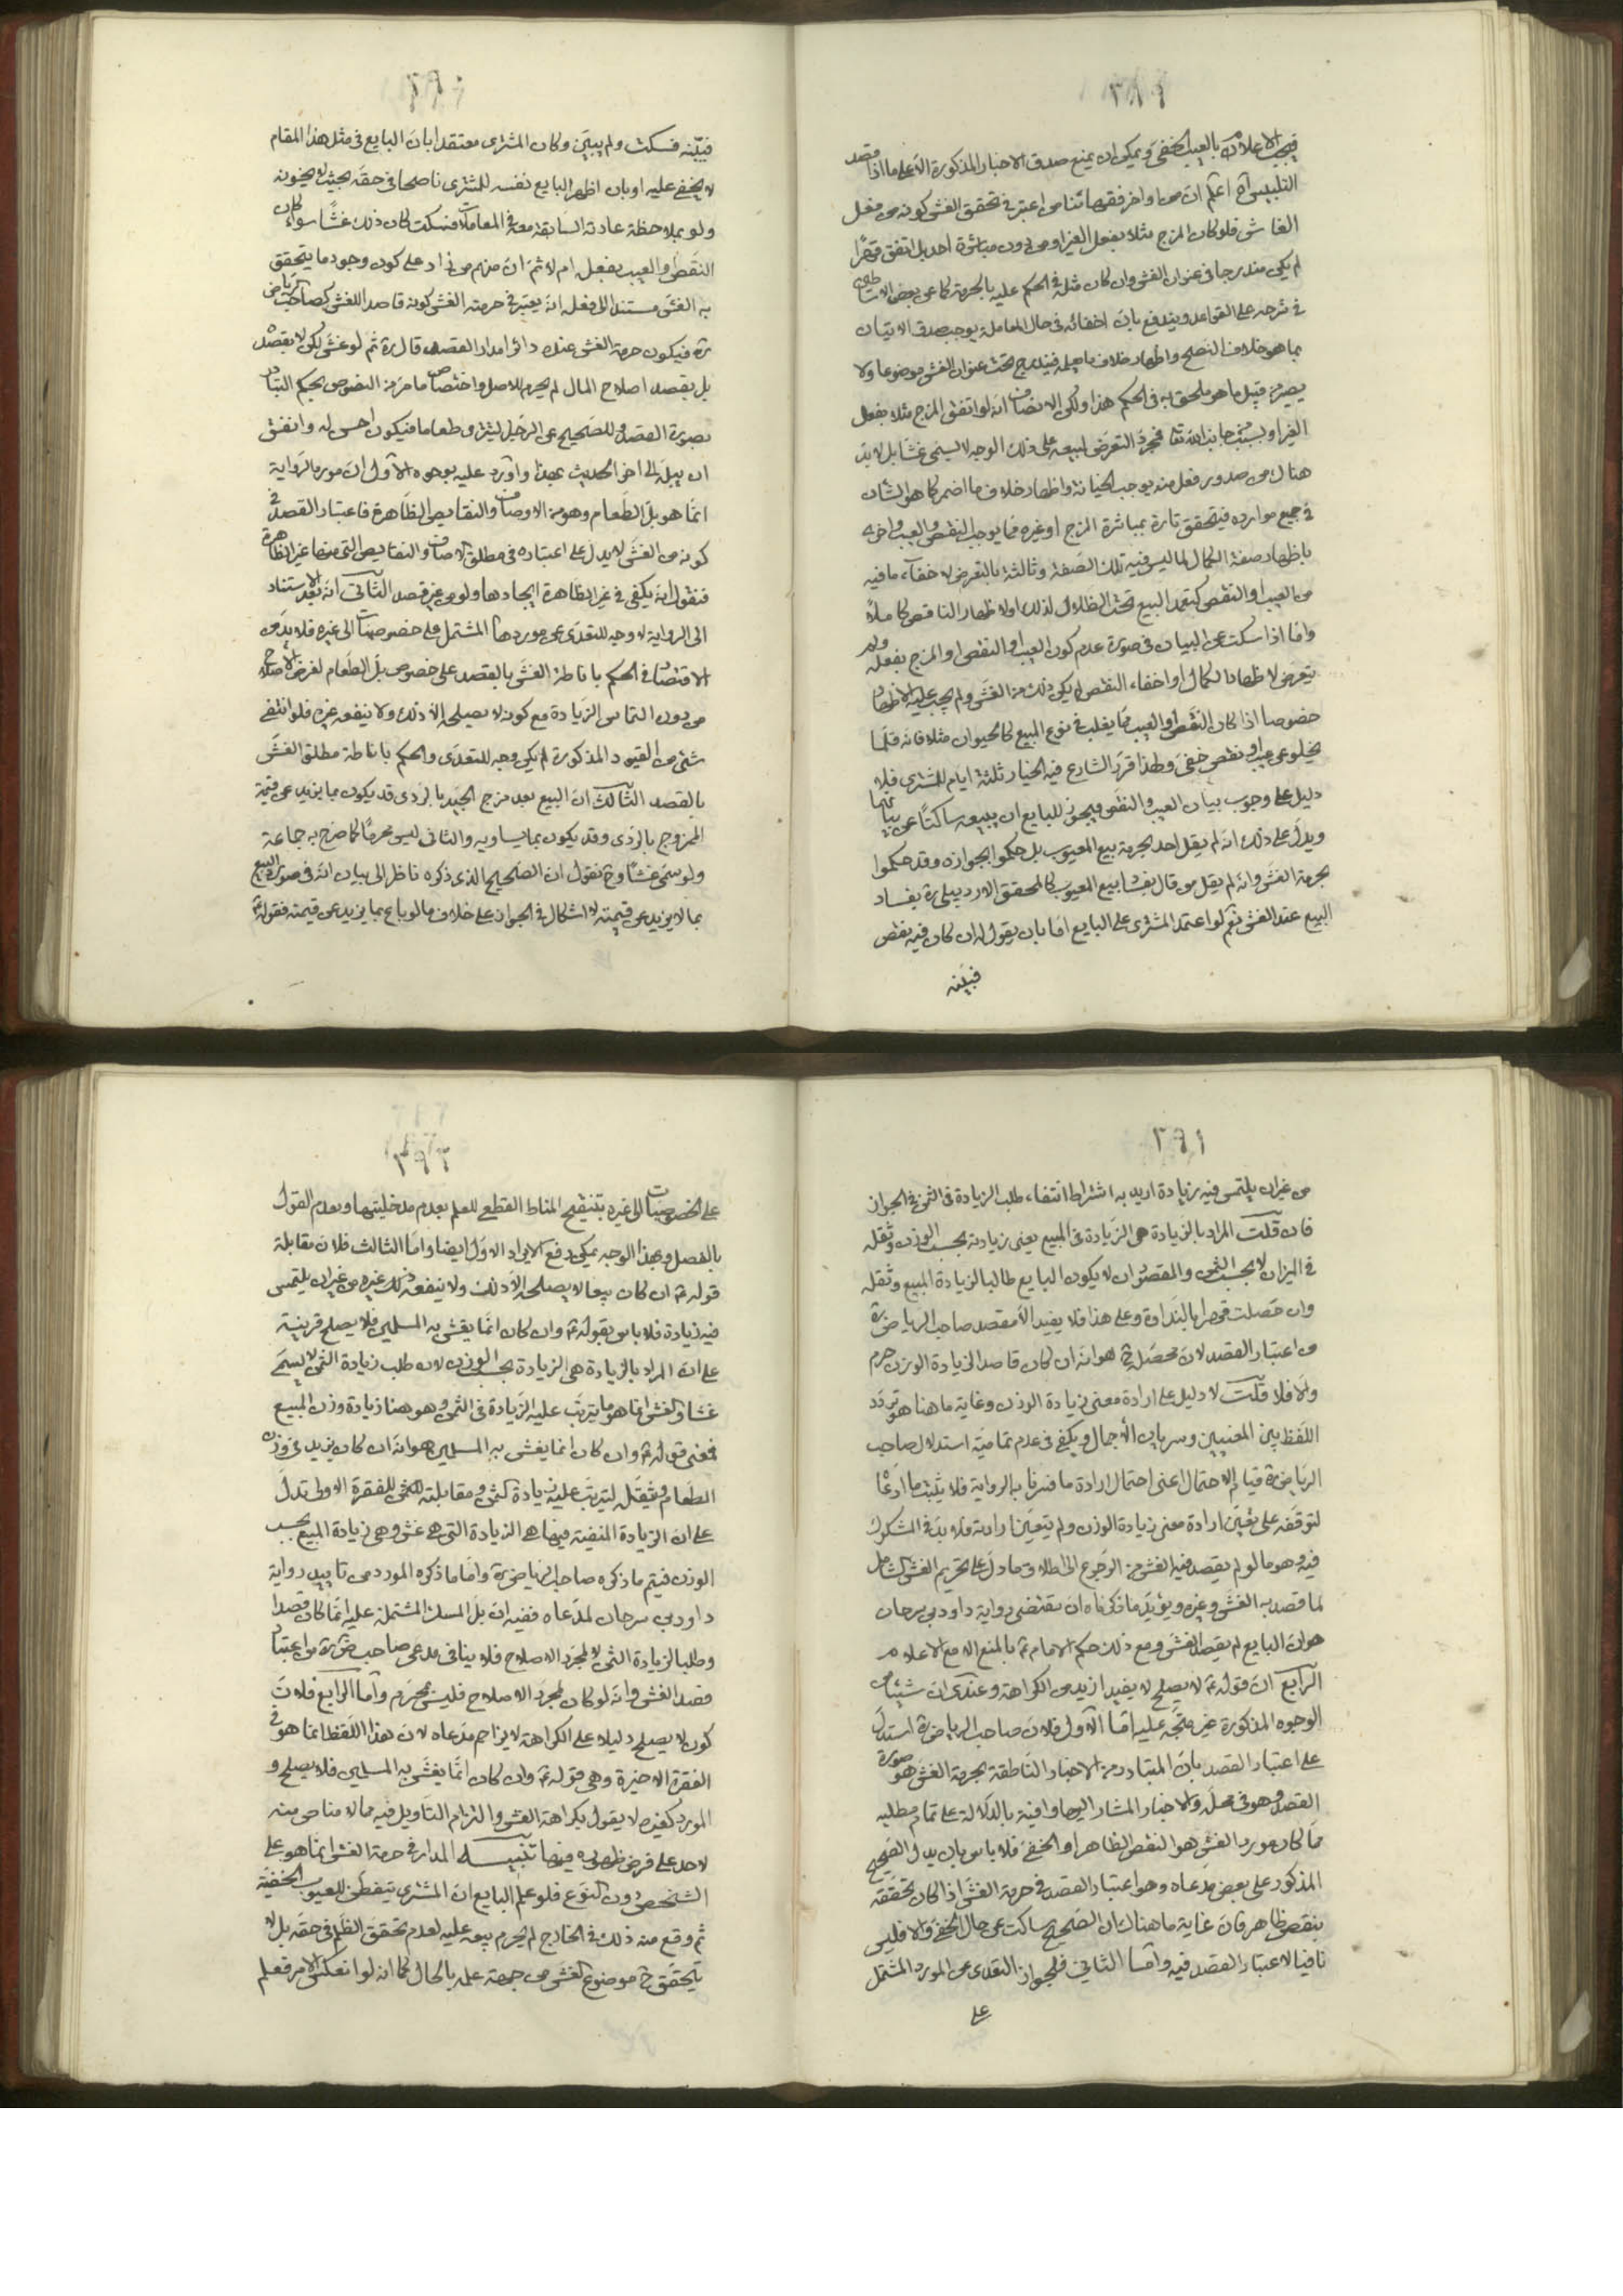 فيجب الاعلام بالعيب الخفى ويمكن ان يمنع صدق الاخبار المذكورة الا على ما اذا قصد
التلبيس آه اعلم ان من اواخر فقهائنا من اعتبر فى تحقق الغش كونه من فعل
الغاش فلو كان المزج مثلا بفعل الغير او من دون مباشرة احد بل اتفق قهرا
لم يكن مندرجا فى عنوان الغش وان كان مثله فى الحكم عليه بالحرمة كما عن بعض الاساطين
فى شرحه على القواعد ويندفع بان اخفائه فى حال المعاملة يوجب صدق الاتيان
بما هو خلاف النصح واظهار خلاف ما يعلمه فيندرج تحت عنوان الغش موضوعا ولا
يصير من قبيل ما هو ملحق به فى الحكم هذا ولكن الانصاف انه لو اتفق المزج مثلا بفعل
الغير او بسبب من جانب الله تعالى فمجرد التعرض لبيعه على ذلك الوجه لا يسمى غشا بل لا بد
هناك من صدور فعل منه يوجب الخيانة واظهار خلاف ما اضمر كما هو الشان
فى جميع موارده فيتحقق تارة بمباشرة المزج او غيره مما يوجب النقص والعيب واخرى
باظهار صفة الكمال لما ليس فيه تلك الصفة وثالثة بالتعرض لاخفاء ما فيه
من العيب او النقص كتعمد البيع تحت الظلال لذلك او لاظهار الناقص كاملا
واما اذا سكت عن البيان فى صورة عدم كون العيب او النقص او المزج بفعله ولم
يتعرض لاظهار الكمال او اخفاء النقص لم يكن ذلك من الغش ولم يجب عليه الاظهار
خصوصا اذا كان النقص او العيب مما يغلب فى نوع المبيع كالحيوان مثلا فانه قلما
يخلو عن عيب او نقص خفى ولهذا قرر الشارع فيه الخيار ثلثة ايام للمشترى فلا
دليل على وجوب بيان العيب والنقص فيجوز للبايع ان يبيعه ساكتا عن بيانهما
ويدل على ذلك انه لم يقل احد بحرمة بيع المعيوب بل حكموا بجوازه وقد حكموا
بحرمة الغش وانه لم يقل من قال بفساد بيع المعيوب كالمحقق الاردبيلى ره بفساد
البيع عند الغش نعم لو اعتمد المشترى على البايع اما بان يقول له ان كان فيه نقص
فبينه
فبينه فسكت ولم يبين وكان المشترى معتقدا بان البايع فى مثل هذا المقام
لا يخفى عليه او بان اظهر البايع نفسه للمشترى ناصحا فى حقه بحيث لا يخونه
ولو بملاحظة عادته السابقة معه فى المعاملات فسكت كان ذلك غشا سواء كان
النقص او العيب بفعله ام لا ثم ان منهم من زاد على كون وجود ما يتحقق
به الغش مستندا الى فعله انه يعتبر فى حرمة الغش كونه قاصدا للغش كصاحب الرياض
ره فيكون حرمة الغش عنده دائرا مدار القصد قال ره ثم لو غش لكن لا بقصده
بل بقصد اصلاح المال لم يحرم للاصل واختصاص ما مر من النصوص بحكم التبادر
بصورة القصد وللصحيح عن الرجل يشترى طعاما فيكون احسن له وانفق
ان يبله الى اخر الحديث بعينه واورد عليه بوجوه الاول ان مورد الرواية
انما هو بل الطعام وهو من الاوصاف والنقايص الظاهرة فاعتبار القصد فى
كونه من الغش لا يدل على اعتباره فى مطلق الاوصاف والنقايص التى منها غير الظاهرة
فنقول انه يكفى فى غير الظاهرة ايجادها ولو من غير قصد الثانى انه بعد الاستناد
الى الرواية لا وجه للتعدى عن موردها المشتمل على خصوصيات الى غيره فلا بد من
الاقتصار فى الحكم باناطة الغش بالقصد على خصوص بل الطعام لغرض الاصلاح
من دون التماس الزيادة مع كونه لا يصلحه الا ذلك ولا ينفقه غيره فلو انتفى
شئ من القيود المذكورة لم يكن وجه للتعدى والحكم باناطة مطلق الغش
بالقصد الثالث ان البيع بعد مزج الجيد بالردى قد يكون بما يزيد عن قيمة
الممزوج بالردى وقد يكون بما يساويه والثانى ليس محرما كما صرح به جماعة
ولو سمى غشا وح نقول ان الصحيح الذى ذكره ناظر الى بيان انه فى صورة البيع
بما لا يزيد عن قيمته لا اشكال فى الجواز على خلاف ما لو باع بما يزيد عن قيمته فقوله ع
٣٩١
من غير ان يلتمس فيه زيادة اريد به اشتراط انتفاء طلب الزيادة فى الثمن فى الجواز
فان قلت المراد بالزيادة هى الزيادة فى المبيع يعنى زيادته بحسب الوزن وثقله
فى الميزان لا بحسب الثمن والمقصود ان لا يكون البايع طالبا لزيادة المبيع وثقله
وان حصلت قهرا بالنداوة وعلى هذا فلا يفيد الا مقصد صاحب الرياض ره
من اعتبار القصد لان محصله ح هو انه ان كان قاصدا لزيادة الوزن حرم
والا فلا قلت لا دليل على ارادة معنى زيادة الوزن وغاية ما هنا هو تردد
اللفظ بين المعنيين وسريان الاجمال ويكفى فى عدم تمامية استدلال صاحب
الرياض ره قيام الاحتمال اعنى احتمال ارادة ما فسرنا به الرواية فلا يثبت ما ادعاه
لتوقفه على تعين ارادة معنى زيادة الوزن ولم يتعين ارادته فلا بد فى المشكوك
فيه وهو ما لو لم يقصد فيه الغش من الرجوع الى اطلاق ما دل على تحريم الغش الشامل
لما قصد به الغش وغيره ويؤيد ما ذكرناه ان مقتضى رواية داود بن سرحان
هو ان البايع لم يقصد الغش ومع ذلك حكم الامام ع بالمنع الا مع الاعلام
الرابع ان قوله ع لا يصلح لا يفيد ازيد من الكراهة وعندى ان شيئا من
الوجوه المذكورة غير متجه عليه اما الاول فلان صاحب الرياض ره استدل
على اعتبار القصد بان المتبادر من الاخبار الناطقة بحرمة الغش هو صورة
القصد وهو فى محله والاخبار المشار اليها وافية بالدلالة على تمام مطلبه
مما كان مورد الغش هو النقص الظاهر او الخفى فلا باس بان يدل الصحيح
المذكور على بعض مدعاه وهو اعتبار القصد فى حرمة الغش اذا كان تحققه
بنقص ظاهر فان غاية ما هناك ان الصحيح ساكت عن حال الخفى والا فليس
نافيا لاعتبار القصد فيه واما الثانى فلجواز التعدى عن المورد المشتمل
على
٣٩٢
على الخصوصيات الى غيره بتنقيح المناط القطعى للعلم بعدم مدخليتها وبعدم القول
بالفصل وبهذا الوجه يمكن دفع الايراد الاول ايضا واما الثالث فلان مقابلة
قوله ع ان كان بيعا لا يصلحه الا ذلك ولا ينفقه غيره من غير ان يلتمس
فيه زيادة فلا باس بقوله ع وان كان انما يغش به المسلمين فلا يصلح قرينة
على ان المراد بالزيادة هى الزيادة بحسب الوزن لان طلب زيادة الثمن لا يسمى
غشا والغش انما هو ما يترتب عليه الزيادة فى الثمن وهو هنا زيادة وزن المبيع
فمعنى قوله ع وان كان انما يغش به المسلمين هو انه ان كان يزيد فى وزن
الطعام وثقله ليترتب عليه زيادة الثمن ومقابلته للفقرة الاولى تدل
على ان الزيادة المنفية فيها هى الزيادة التى هى غش وهى زيادة المبيع بحسب
الوزن فيتم ما ذكره صاحب الرياض ره واما ما ذكره المورد من تاييد رواية
داود بن سرحان لمدعاه ففيه ان بل المسك المشتملة عليه انما كان قصدا
وطلبا لزيادة الثمن لا لمجرد الاصلاح فلا ينافى مدعى صاحب الرياض ره من اعتبار
قصد الغش وانه لو كان لمجرد الاصلاح فليس بمحرم واما الرابع فلان
كون لا يصلح دليلا على الكراهة لا يزاحم مدعاه لان هذا اللفظ انما هو فى
الفقرة الاخيرة وهى قوله ع وان كان انما يغش به المسلمين فلا يصلح و
المورد كغيره لا يقول بكراهة الغش والتزام التاويل فيه مما لا مناص منه
لاحد على فرض ظهوره فيها تنبيه المدار فى حرمة الغش انما هو على
الشخص دون النوع فلو علم البايع ان المشترى يتفطن للعيوب الخفية
ثم وقع منه ذلك فى الخارج لم يحرم بيعه عليه لعدم تحقق الظلم فى حقه بل لا
يتحقق ح موضوع الغش من جهة علمه بالحال كما انه لو انعكس الامر فعلم